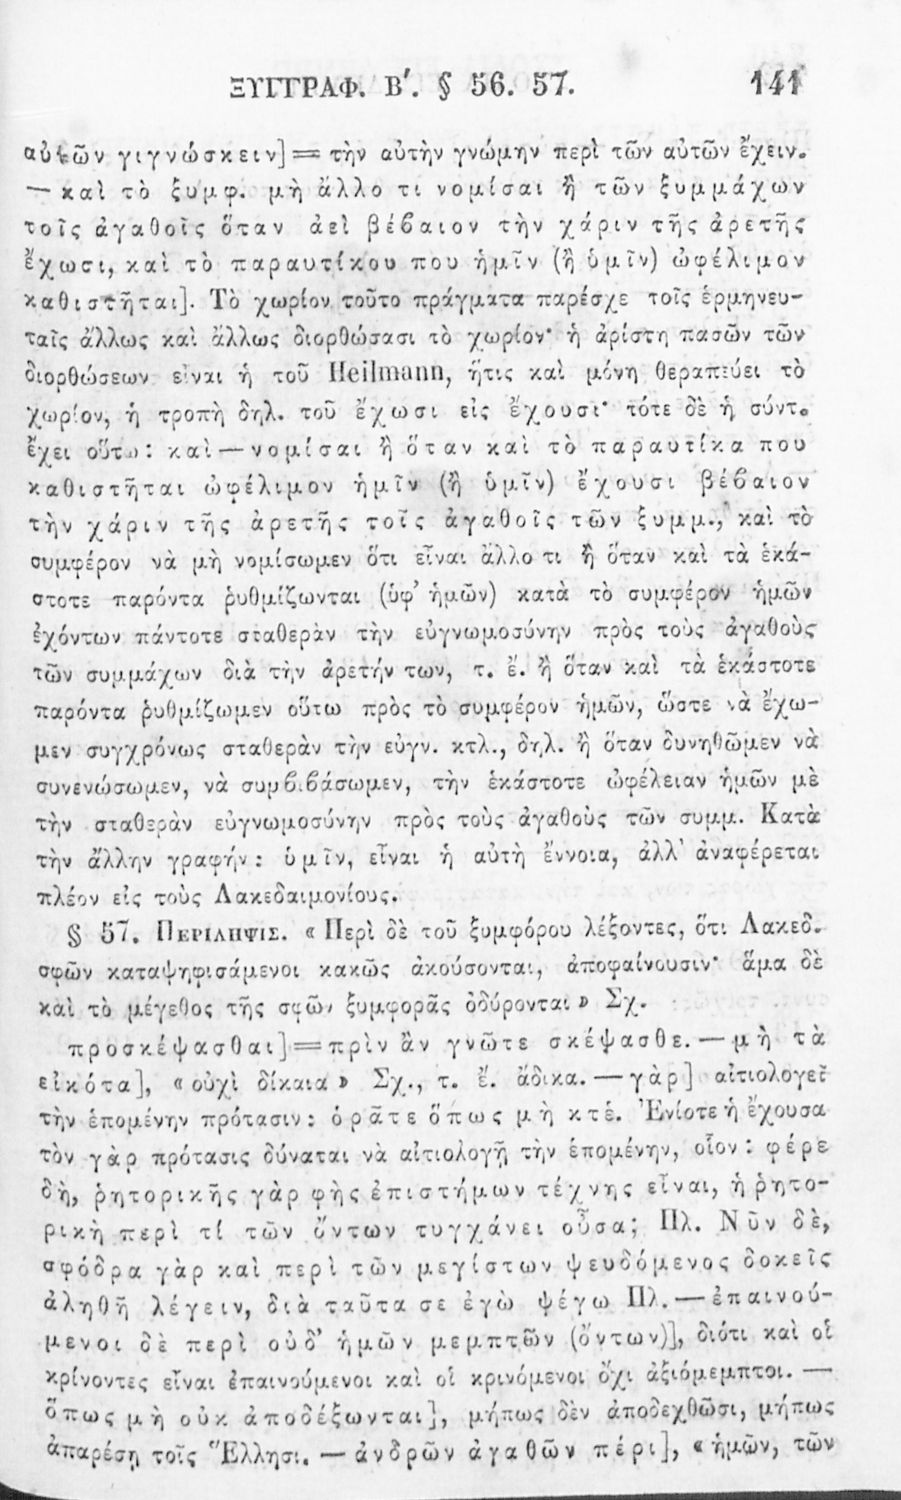 ΞΥΓΓΡΑΦ. Β΄. § 56. 57. 141
αὐτῶν γιγνώσκειν] = τὴν αὐτὴν γνώμην περὶ τῶν αὐτῶν ἔχειν.
— καὶ τὸ ξυμφ. μὴ ἄλλο τι νομίσαι ἢ τῶν ξυμμάχων
τοῖς ἀγαθοῖς ὅταν ἀεὶ βέϐαιον τὴν χάριν τῆς ἀρετῆς
ἔχωσι, καὶ τὸ παραυτίκου που ἡμῖν (ἢ ὑμῖν) ὠφέλιμον
καθιστῆται]. Τὸ χωρίον τοῦτο πράγματα παρέσχε τοῖς ἑρμηνευ-
ταῖς ἄλλως καὶ ἄλλως διορθώσασι τὸ χωρίον· ἡ ἀρίστη πασῶν τῶν
διορθώσεων εἶναι ἡ τοῦ Heilmann, ἥτις καὶ μόνη θεραπεύει τὸ
χωρίον, ἡ τροπὴ δηλ. τοῦ ἔχωσι εἰς ἔχουσι· τότε δὲ ἡ σύντ.
ἔχει οὕτω: καὶ — νομίσαι ἢ ὅταν καὶ τὸ παραυτίκα που
καθιστῆται ὠφέλιμον ἡμῖν (ἢ ὑμῖν) ἔχουσι βέϐαιον
τὴν χάριν τῆς ἀρετῆς τοῖς ἀγαθοῖς τῶν ξυμμ., καὶ τὸ
συμφέρον νὰ μὴ νομίσωμεν ὅτι εἶναι ἄλλο τι ἢ ὅταν καὶ τὰ ἑκά-
στοτε παρόντα ῥυθμίζωνται (ὑφ' ἡμῶν) κατὰ τὸ συμφέρον ἡμῶν
ἐχόντων πάντοτε σταθερὰν τὴν εὐγνωμοσύνην πρὸς τοὺς ἀγαθοὺς
τῶν συμμάχων διὰ τὴν ἀρετήν των, τ. ἔ. ἢ ὅταν καὶ τὰ ἑκάστοτε
παρόντα ῥυθμίζωμεν οὕτω πρὸς τὸ συμφέρον ἡμῶν, ὥστε νὰ ἔχω-
μεν συγχρόνως σταθερὰν τὴν εὐγν. κτλ., δηλ. ἢ ὅταν δυνηθῶμεν νὰ
συνενώσωμεν, νὰ συμϐιϐάσωμεν, τὴν ἑκάστοτε ὠφέλειαν ἡμῶν μὲ
τὴν σταθερὰν εὐγνωμοσύνην πρὸς τοὺς ἀγαθοὺς τῶν συμμ. Κατὰ
τὴν ἄλλην γραφήν: ὑμῖν, εἶναι ἡ αὐτὴ ἔννοια, ἀλλ' ἀναφέρεται
πλέον εἰς τοὺς Λακεδαιμονίους.
§ 57. ΠΕΡΙΛΗΨΙΣ. « Περὶ δὲ τοῦ ξυμφόρου λέξοντες, ὅτι Λακεδ.
σφῶν καταψηφισάμενοι κακῶς ἀκούσονται, ἀποφαίνουσιν· ἅμα δὲ
καὶ τὸ μέγεθος τῆς σφῶν ξυμφορᾶς ὀδύρονται » Σχ.
προσκέψασθαι] = πρὶν ἂν γνῶτε σκέψασθε. — μὴ τὰ
εἰκότα], « οὐχὶ δίκαια » Σχ., τ. ἔ. ἄδικα. — γὰρ] αἰτιολογεῖ
τὴν ἑπομένην πρότασιν: ὁρᾶτε ὅπως μὴ κτἑ. Ἐνίοτε ἡ ἔχουσα
τὸν γὰρ πρότασις δύναται νὰ αἰτιολογῇ τὴν ἑπομένην, οἷον: φέρε
δὴ, ῥητορικῆς γὰρ φῂς ἐπιστήμων τέχνης εἶναι, ἡ ῥητο-
ρικὴ περὶ τί τῶν ὄντων τυγχάνει οὖσα; Πλ. Νῦν δὲ,
σφόδρα γὰρ καὶ περὶ τῶν μεγίστων ψευδόμενος δοκεῖς
ἀληθῆ λέγειν, διὰ ταῦτα σε ἐγὼ ψέγω Πλ. — ἐπαινού-
μενοι δὲ περὶ οὐδ' ἡμῶν μεμπτῶν (ὄντων)], διότι καὶ οἱ
κρίνοντες εἶναι ἐπαινούμενοι καὶ οἱ κρινόμενοι ὄχι ἀξιόμεμπτοι. —
ὅπως μὴ οὐκ ἀποδέξωνται], μήπως δὲν ἀποδεχθῶσι, μήπως
ἀπαρέσῃ τοῖς Ἕλλησι. — ἀνδρῶν ἀγαθῶν πέρι], « ἡμῶν, τῶν